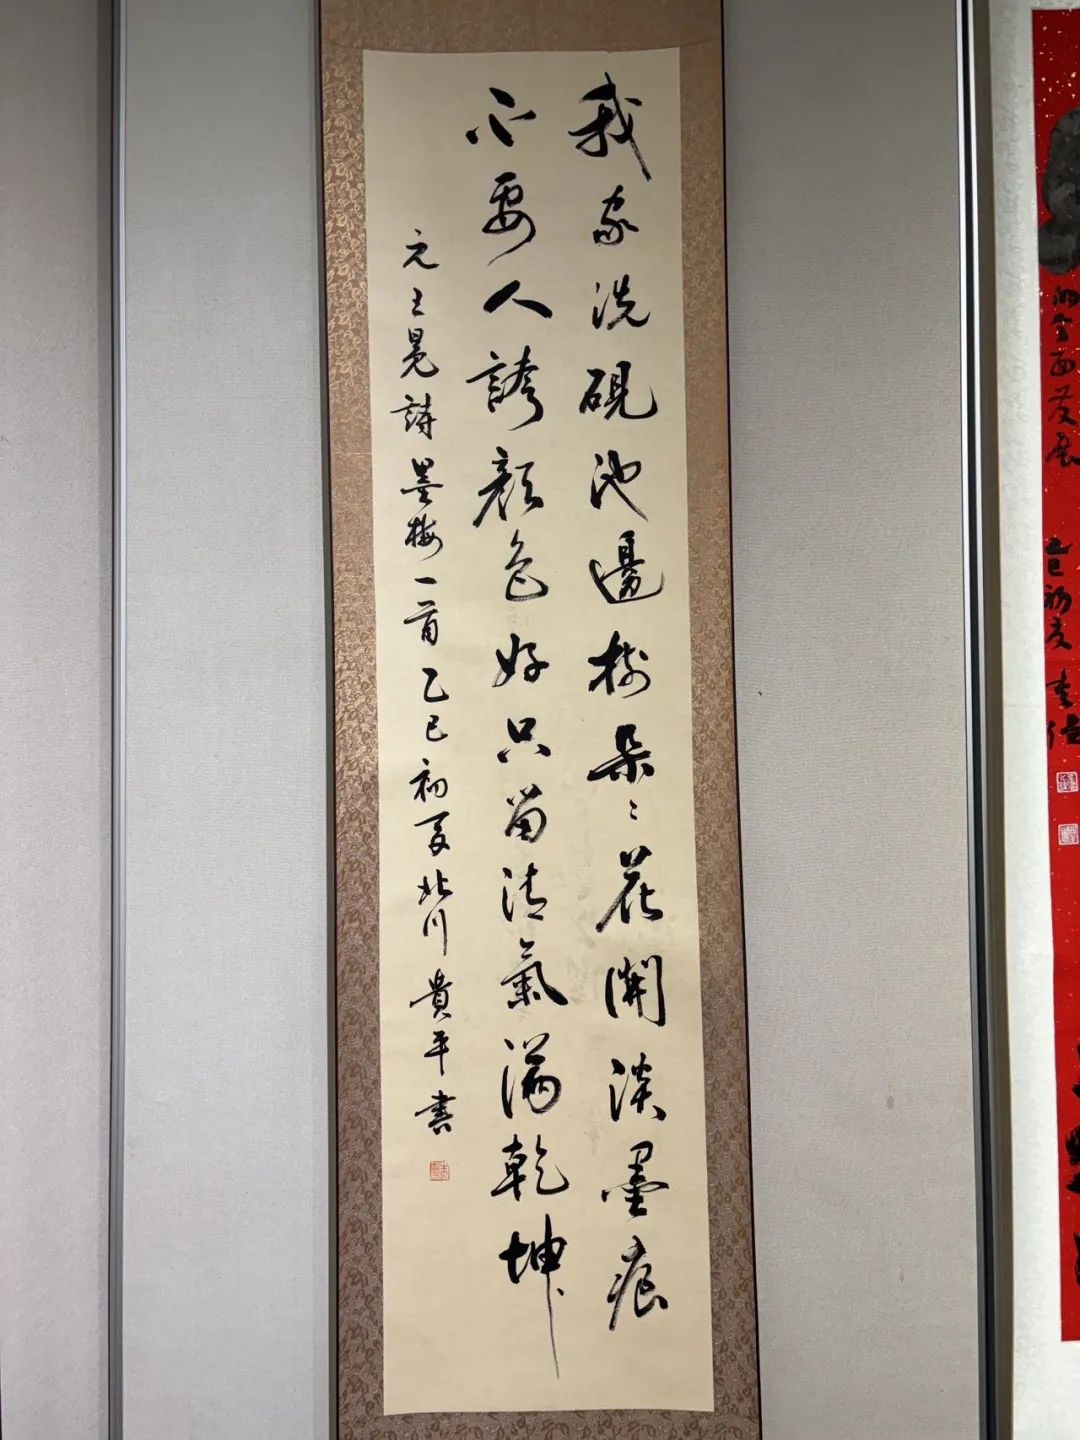 我家洗硯池邊樹朵〻花開淡墨痕
不要人誇顏色好只留清氣滿乾坤
元王冕詩墨梅一首乙巳初夏北川貴平書
乙巳初夏